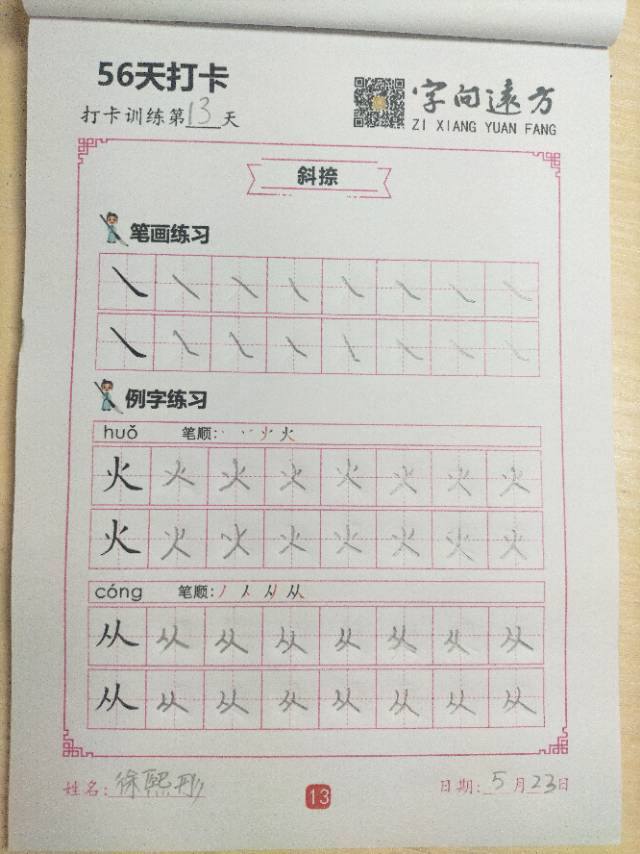 56天打卡
打卡训练第13天
字向远方
ZI XIANG YUAN FANG
斜捺
笔画练习
例字练习
huǒ 笔顺:
火火火火火火火火
火火火火火火火火
cóng 笔顺:
从从从从从从从从
从从从从从从从从
姓名:徐熙彤
13
日期:5月23日